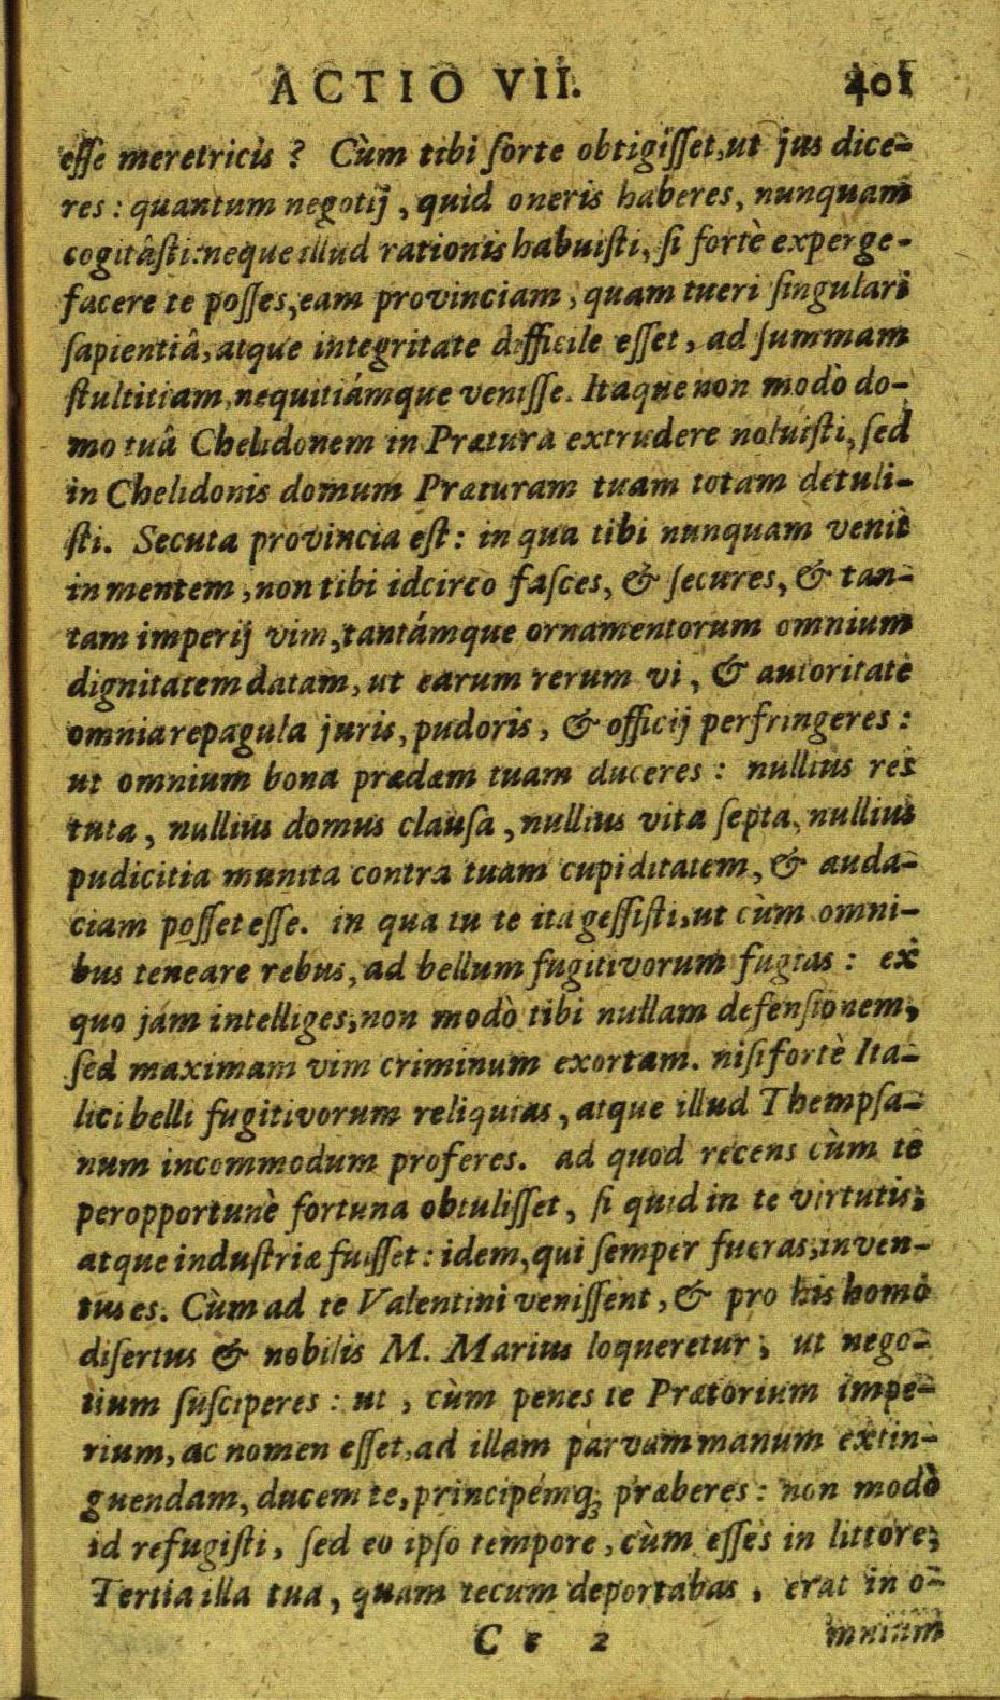 ACTIO VII. 401
esse meretricis? Cùm tibi sorte obtigisset, ut jus dice-
res: quantum negotij, quid oneris haberes, nunquam
cogitâsti: neque illud rationis habuisti, si fortè experge-
facere te posses, eam provinciam, quam tueri singulari
sapientiâ, atque integritate difficile esset, ad summam
stultitiam, nequitiámque venisse. Itaque non modò do-
mo tuâ Chelidonem in Prætura extrudere noluisti, sed
in Chelidonis domum Præturam tuam totam detuli-
sti. Secuta provincia est: in qua tibi nunquam venit
in mentem, non tibi idcirco fasces, & secures, & tan-
tam imperij vim, tantámque ornamentorum omnium
dignitatem datam, ut earum rerum vi, & autoritate
omnia repagula juris, pudoris, & officij perfringeres:
ut omnium bona prædam tuam duceres: nullius res
tuta, nullius domus clausa, nullius vita septa, nullius
pudicitia munita contra tuam cupiditatem, & auda-
ciam posset esse. in qua tu te ita gessisti, ut cùm omni-
bus teneare rebus, ad bellum fugitivorum fugias: ex
quo jam intelliges, non modò tibi nullam defensionem,
sed maximam vim criminum exortam. nisi fortè Ita-
lici belli fugitivorum reliquias, atque illud Thempsa-
num incommodum proferes. ad quod recens cùm te
peropportunè fortuna obtulisset, si quid in te virtutis,
atque industriæ fuisset: idem, qui semper fueras, inven-
tus es. Cùm ad te Valentini venissent, & pro his homo
disertus & nobilis M. Marius loqueretur, ut nego-
tium susciperes: ut, cùm penes te Prætorium impe-
rium, ac nomen esset, ad illam parvam manum extin-
guendam, ducem te, principémq; præberes: non modò
id refugisti, sed eo ipso tempore, cùm esses in littore,
Tertia illa tua, quam tecum deportabas, erat in o-
C c 2 mnium